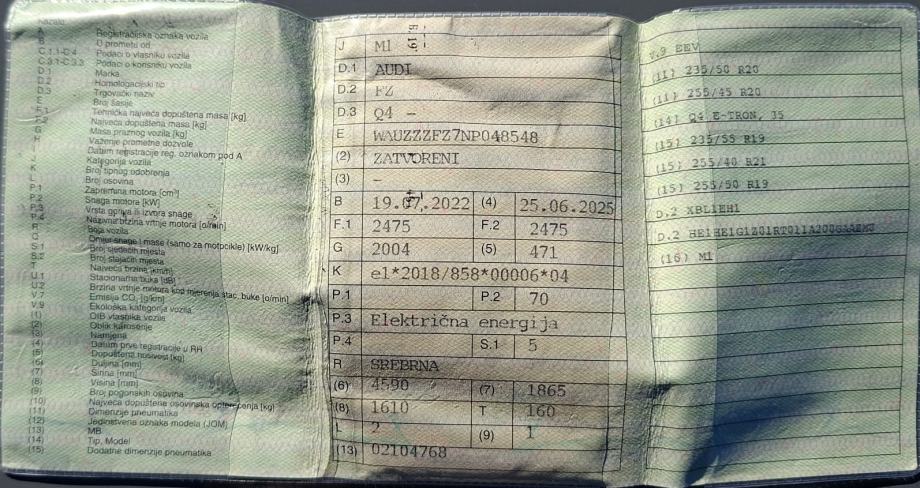 Registracijska oznaka vozila
U prometu od
C.1.1-C.4 Podaci o vlasniku vozila
C.3.1-C.3.3 Podaci o korisniku vozila
D.1 Marka
D.2 Homologacijski tip
D.3 Trgovački naziv
E Broj šasije
F.1 Tehnička najveća dopuštena masa [kg]
F.2 Najveća dopuštena masa [kg]
G Masa praznog vozila [kg]
H Važenje prometne dozvole
Datum registracije reg. oznakom pod A
J Kategorija vozila
K Broj tipnog odobrenja
L Broj osovina
P.1 Zapremina motora [cm³]
P.2 Snaga motora [kW]
P.3 Vrsta goriva ili izvora snage
P.4 Nazivna brzina vrtnje motora [o/min]
R Boja vozila
Omjer snage i mase (samo za motocikle) [kW/kg]
S.1 Broj sjedećih mjesta
S.2 Broj stajaćih mjesta
T Najveća brzina [km/h]
U.1 Stacionarna buka [dB]
U.2 Brzina vrtnje motora kod mjerenja stac. buke [o/min]
V.7 Emisija CO₂ [g/km]
V.9 Ekološka kategorija vozila
(1) OIB vlasnika vozila
(2) Oblik karoserije
(3) Namjena
(4) Datum prve registracije u RH
(5) Dopuštena nosivost [kg]
(6) Duljina [mm]
(7) Širina [mm]
(8) Visina [mm]
(9) Broj pogonskih osovina
(10) Najveća dopuštena osovinska opterećenja [kg]
(11) Dimenzije pneumatika
(12) Jedinstvena oznaka modela (JOM)
(13) MB
(14) Tip, Model
(15) Dodatne dimenzije pneumatika
J M1
D.1 AUDI
D.2 FZ
D.3 Q4 –
E WAUZZZFZ7NP048548
(2) ZATVORENI
(3) –
B 19.07.2022 (4) 25.06.2025
F.1 2475 F.2 2475
G 2004 (5) 471
K e1*2018/858*00006*04
P.1 P.2 70
P.3 Električna energija
P.4 S.1 5
R SREBRNA
(6) 4590 (7) 1865
(8) 1610 T 160
L 2 (9) 1
(13) 02104768
V.9 EEV
(11) 235/50 R20
(11) 255/45 R20
(14) Q4 E-TRON, 35
(15) 235/55 R19
(15) 255/40 R21
(15) 255/50 R19
D.2 XBL1EH1
(16) M1